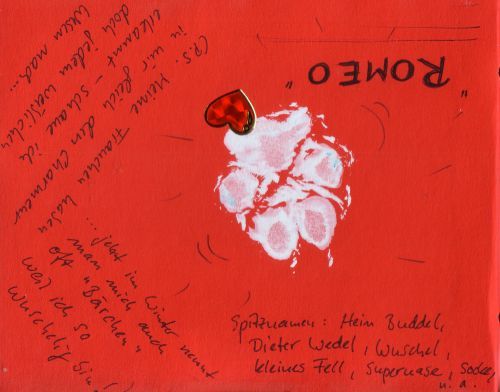 "ROMEO"
(P.S. Meine Frauchen haben
in mir gleich den Charmeur
erkannt - schaue ich
doch jedem weiblichen
Wesen nach...
... jetzt im Winter nennt
man mich auch
oft "Bärchen"
weil ich so
wuschelig bin!)
Spitznamen: Hein Buddel,
Dieter Wedel, Wuschel,
kleines Fell, Supernase, Socke,
u.a.